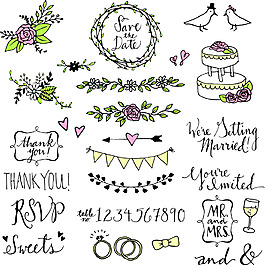 Save
the
Date
thank
you!
We're Getting
Married!
THANK YOU!
You're Invited
RSVP
table
no.
1234567890
MR.
and
MRS.
Sweets
and &